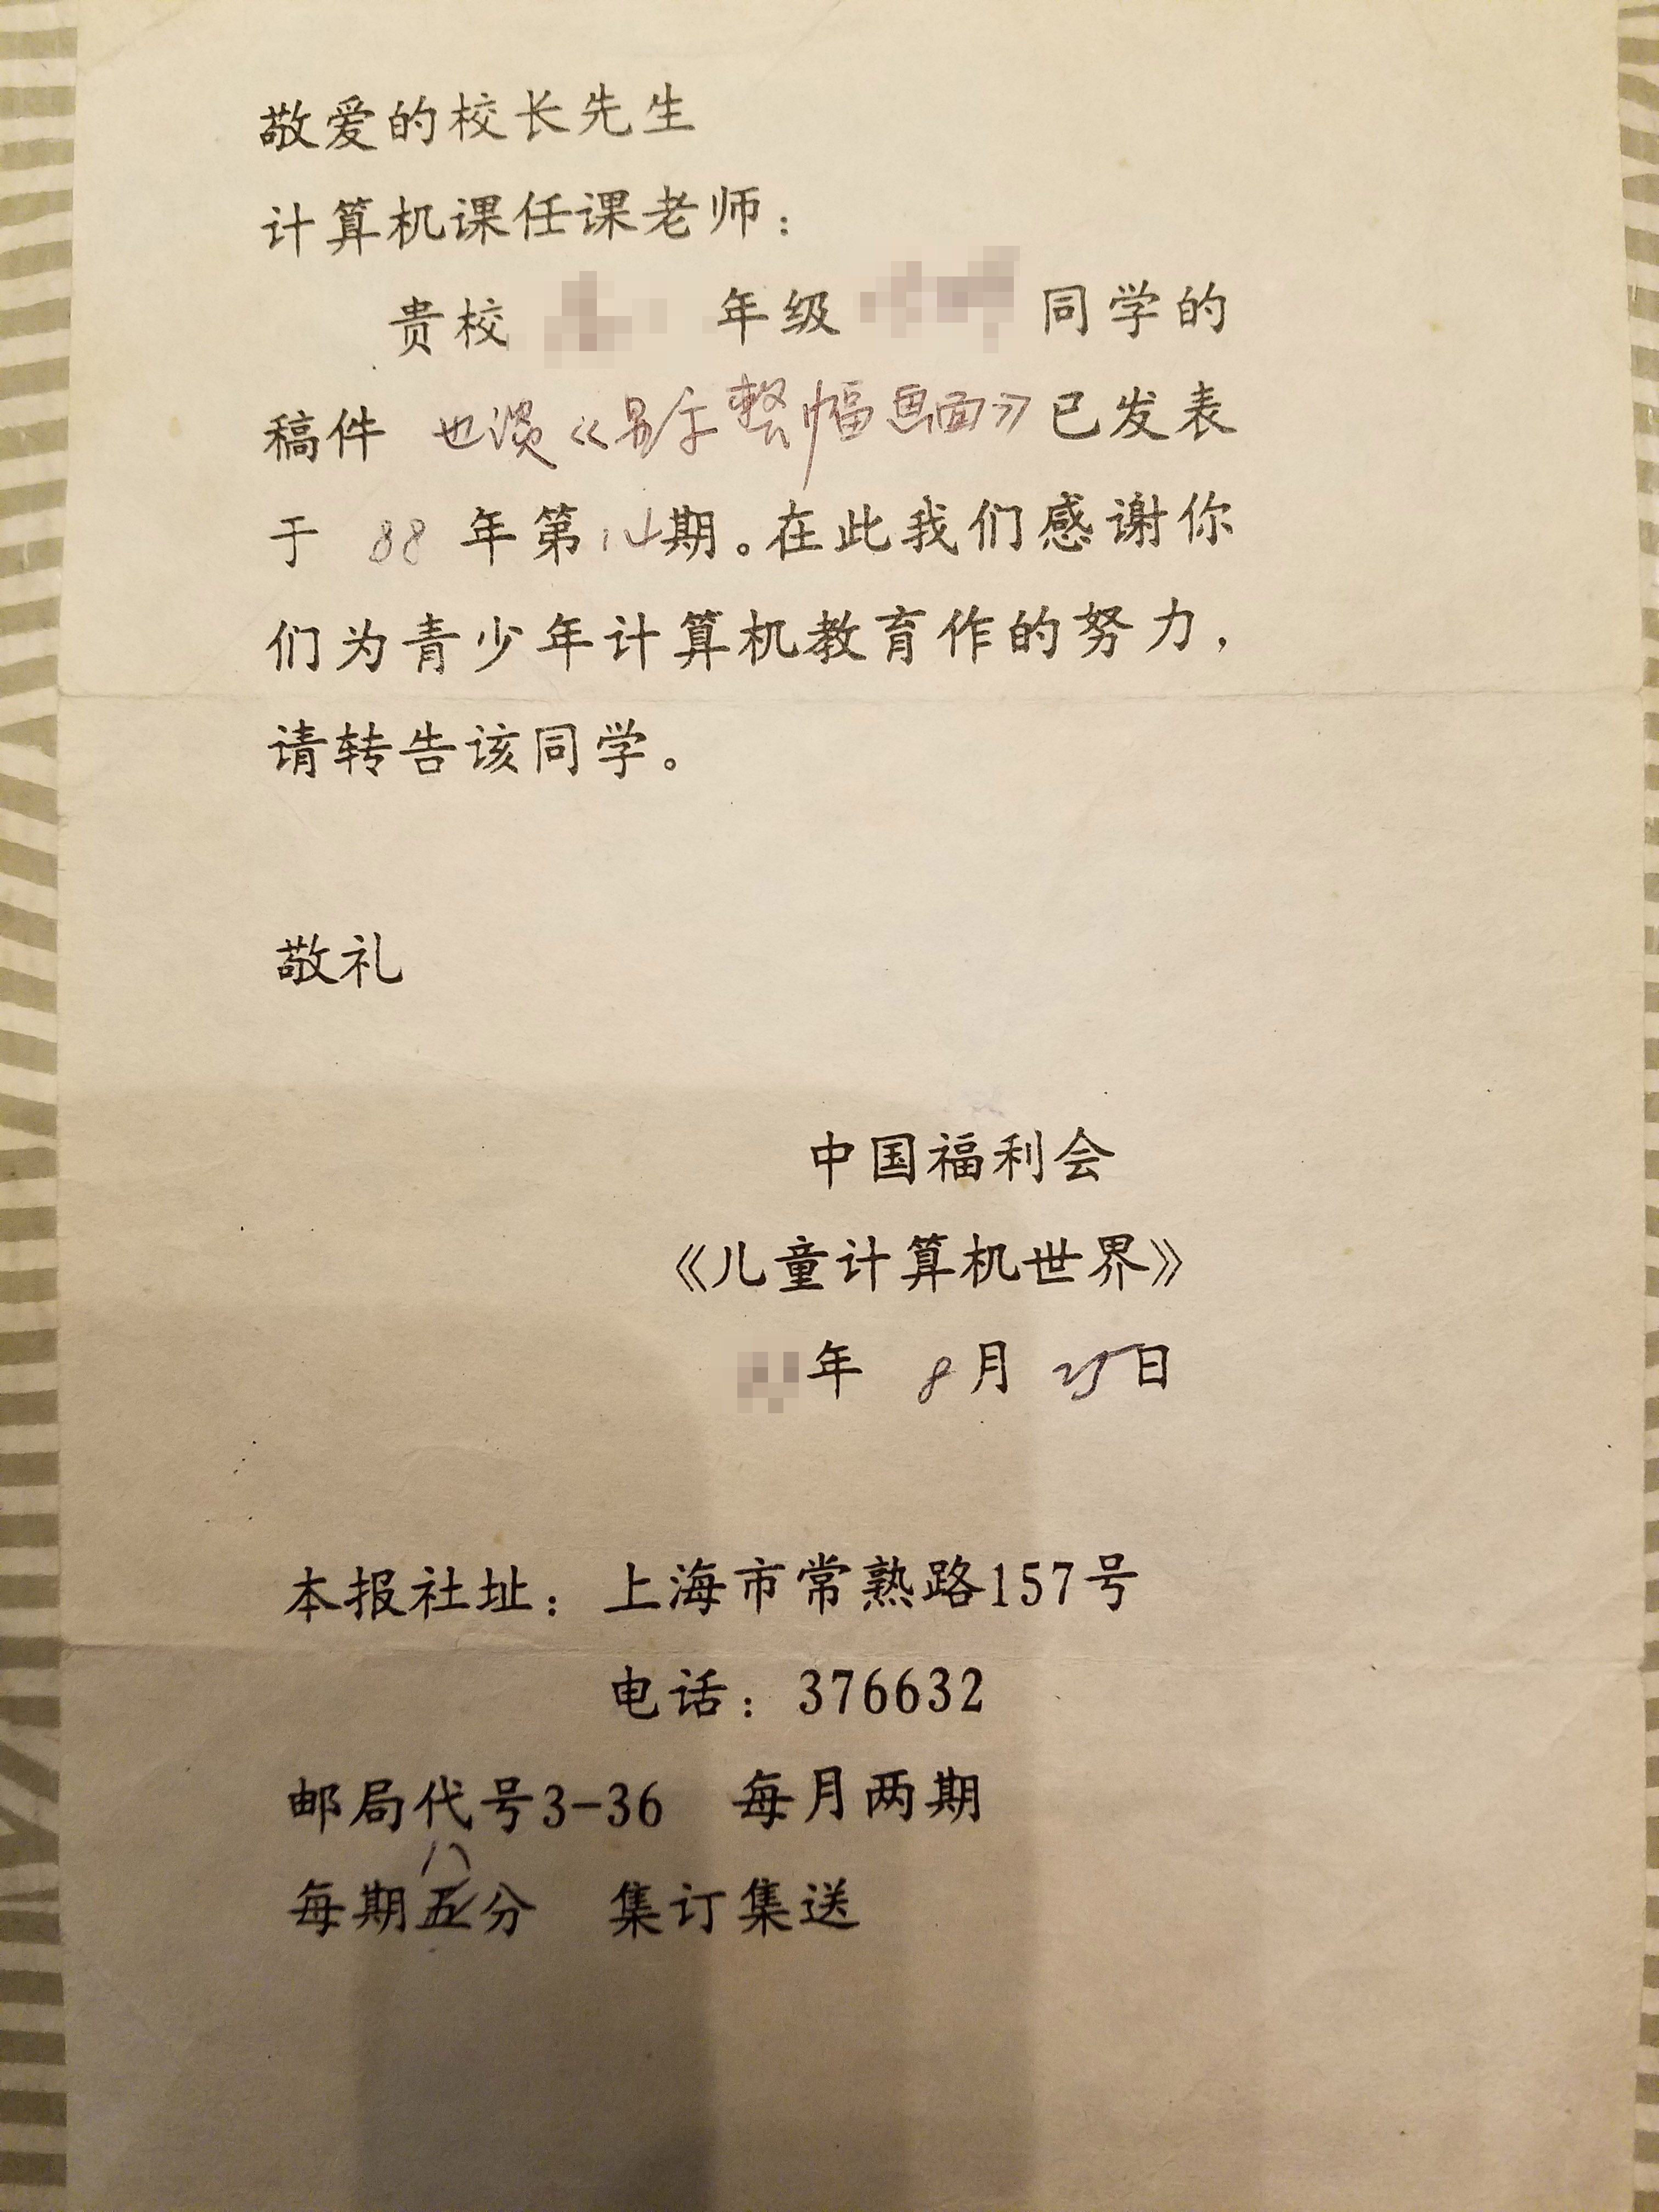 敬爱的校长先生
计算机课任课老师：
贵校 年级 同学的
稿件 也谈《 整幅画面》已发表
于 88 年第14期。在此我们感谢你
们为青少年计算机教育作的努力，
请转告该同学。
敬礼
中国福利会
《儿童计算机世界》
年 8月 25日
本报社址：上海市常熟路157号
电话：376632
邮局代号3-36 每月两期
每期五分 集订集送